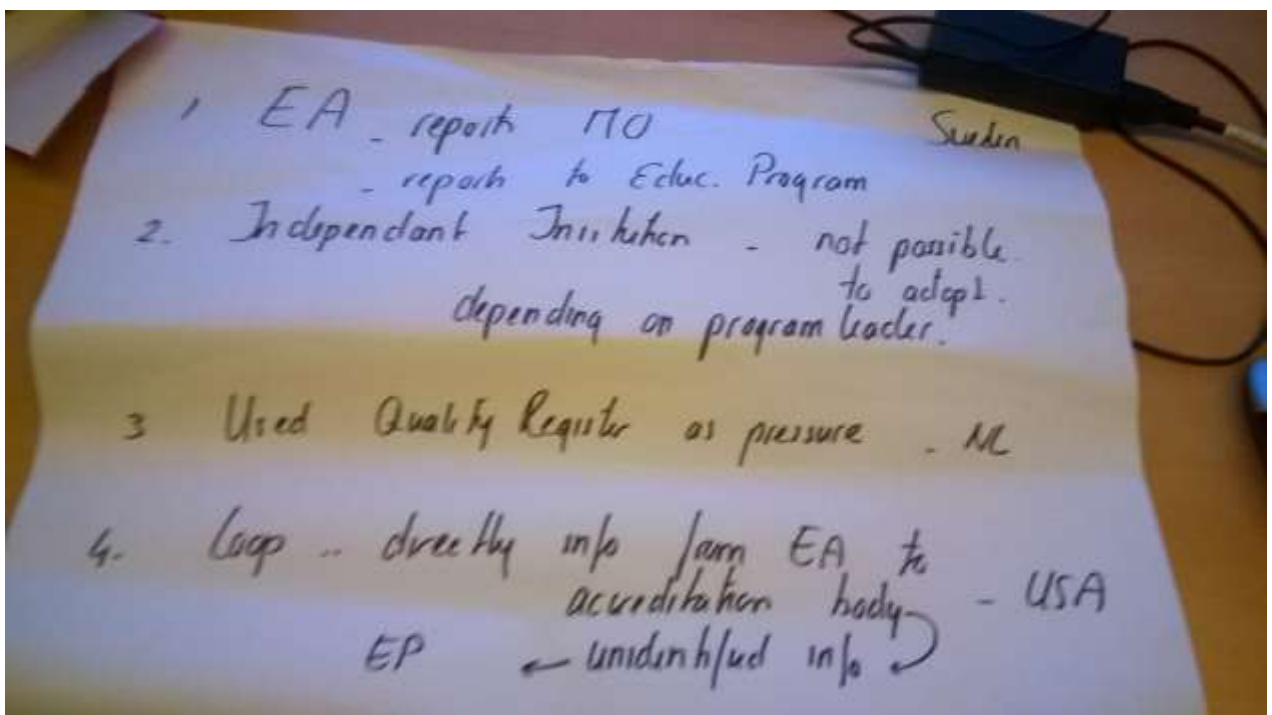 1 EA - reports MO Sweden
- reports to Educ. Program
2. Independant Institution - not possible
to adopt.
depending on program leader.
3 Used Quality Register as pressure - NL
4. Loop .. directly info from EA to
acureditation body - USA
EP ← unidentified info